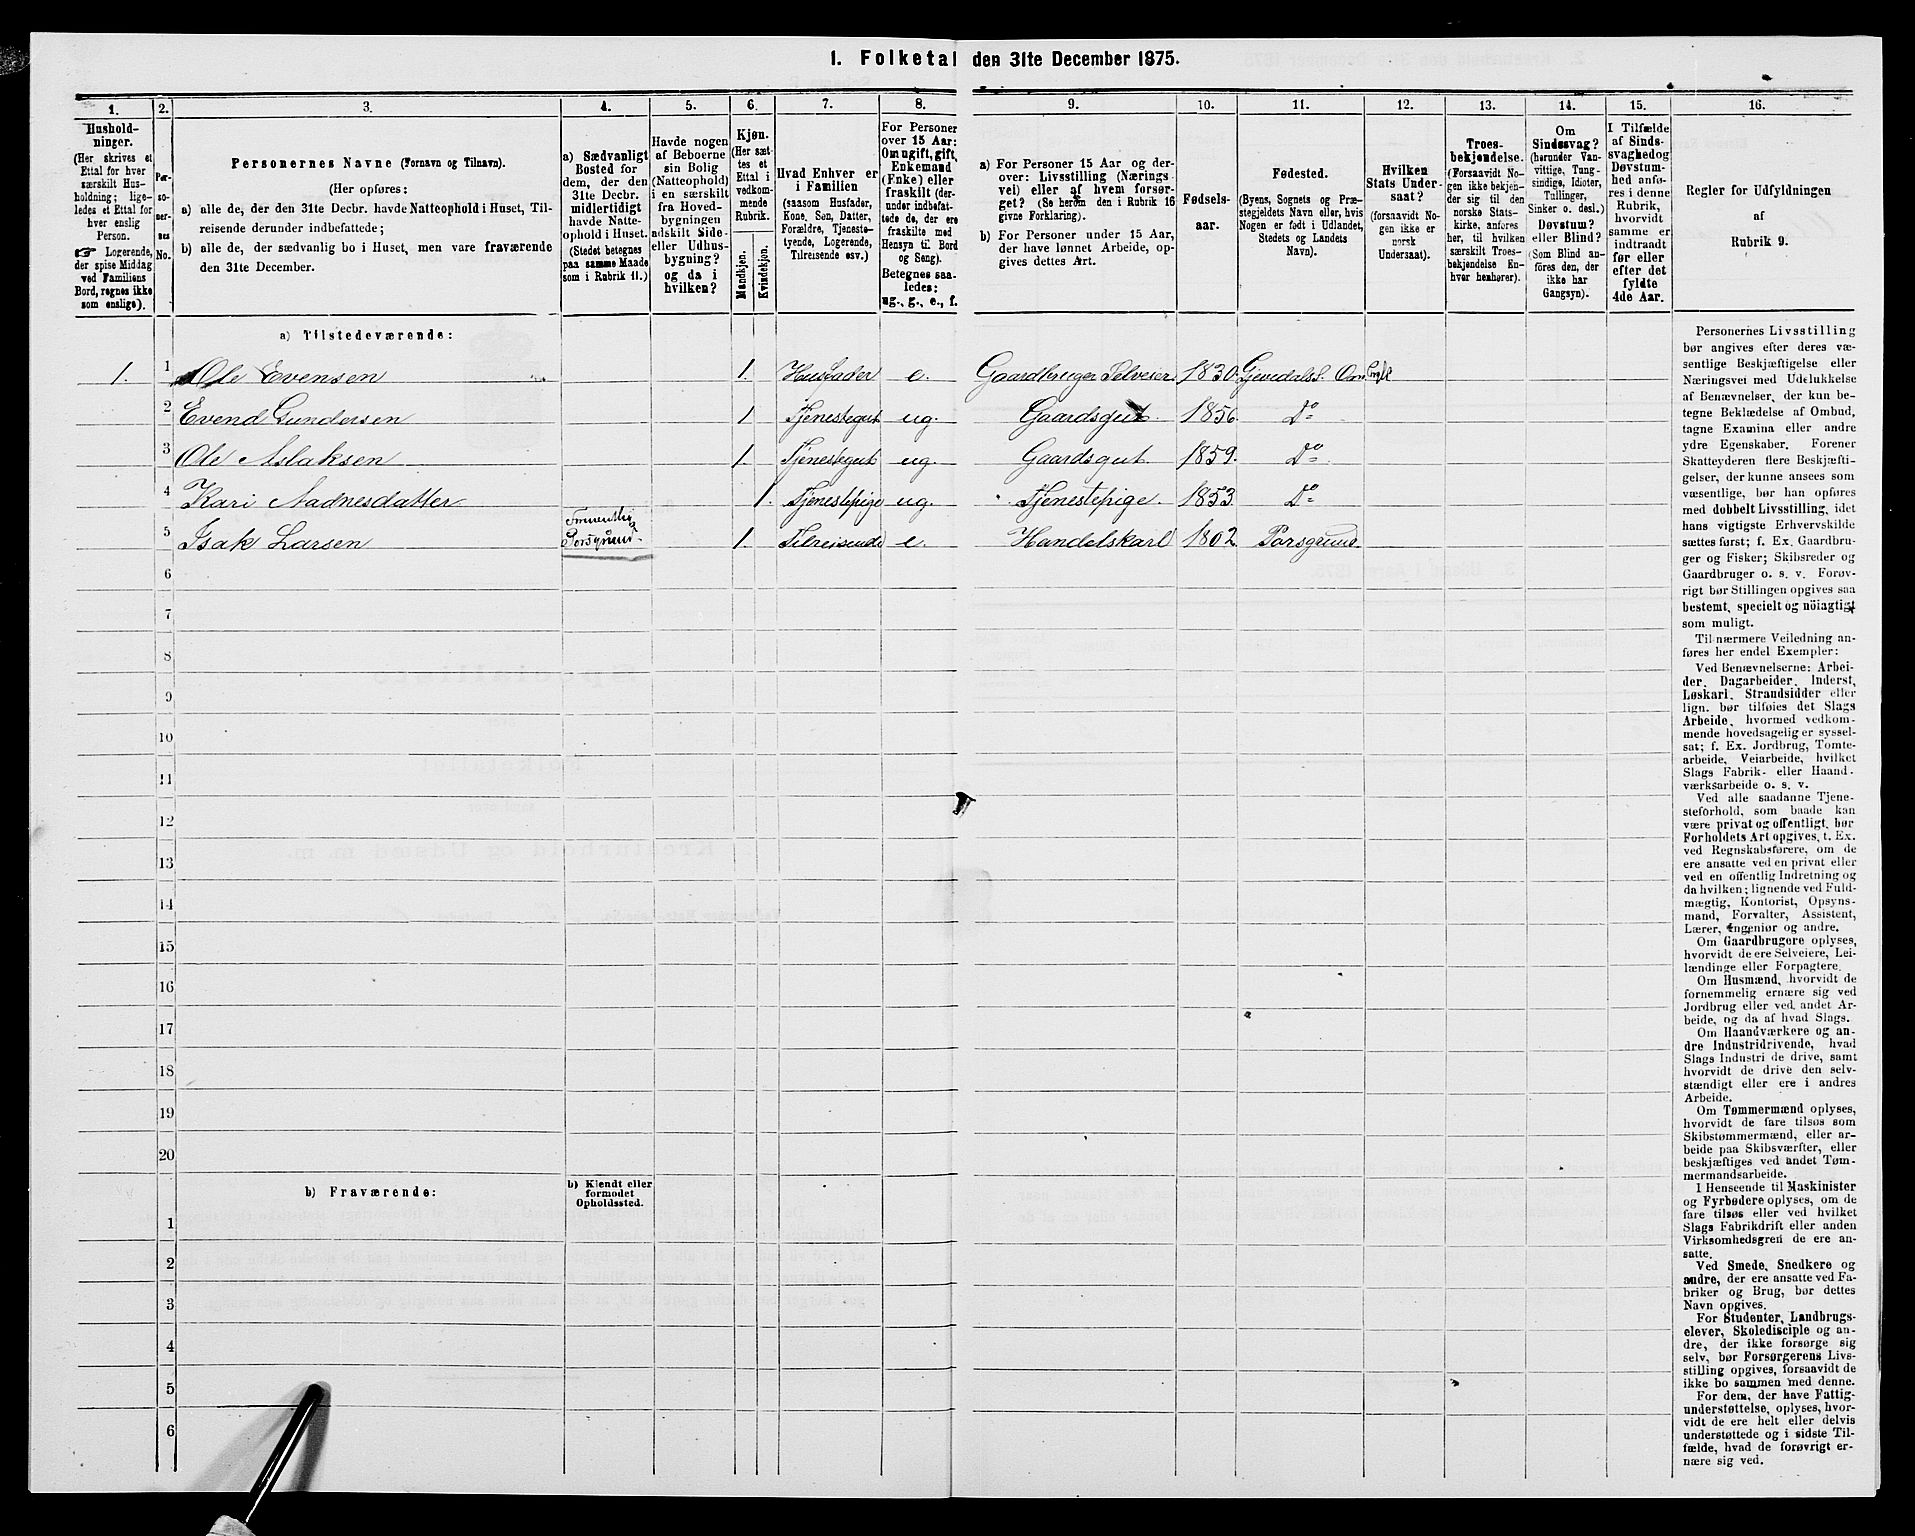 1. Folketal den 31te December 1875.
1.
Hushold-
ninger.
(Her skrives et
Ettal for hver
særskilt Hus-
holdning; lige-
ledes et Ettal for
hver enslig
Person.
☞ Logerende,
der spise Middag
ved Familiens
Bord, regnes ikke
som enslige).
2.
Per-
so-
ner-
nes
No.
3.
Personernes Navne (Fornavn og Tilnavn).
(Her opføres:
a) alle de, der den 31te Decbr. havde Natteophold i Huset, Til-
reisende derunder indbefattede;
b) alle de, der sædvanlig bo i Huset, men vare fraværende
den 31te December.
4.
a) Sædvanligt
Bosted for
dem, der den
31te Decbr.
midlertidigt
havde Natte-
ophold i Huset.
(Stedet betegnes
paa samme Maade
som i Rubrik 11.)
5.
Havde nogen
af Beboerne
sin Bolig
(Natteophold)
i en særskilt
fra Hoved-
bygningen
adskilt Side-
eller Udhus-
bygning?
og da i
hvilken?
6.
Kjøn.
(Her sæt-
tes et
Ettal i
vedkom-
mende
Rubrik.
Mandkjøn.
Kvindekjøn.
7.
Hvad Enhver er
i Familien
(saasom Husfader,
Kone, Søn, Datter,
Forældre, Tjeneste-
tyende, Logerende,
Tilreisende osv.)
8.
For Personer
over 15 Aar:
Om ugift, gift,
Enkemand
(Enke) eller
fraskilt (der-
under indbefat-
tede de, der ere
fraskilte med
Hensyn til Bord
og Seng).
Betegnes saa-
ledes:
ug., g., e., f.
9.
a) For Personer 15 Aar og der-
over: Livsstilling (Nærings-
vei) eller af hvem forsør-
get? (Se herom den i Rubrik 16
givne Forklaring).
b) For Personer under 15 Aar,
der have lønnet Arbeide, op-
gives dettes Art.
10.
Fødsels-
aar.
11.
Fødested.
(Byens, Sognets og Præ-
stegjeldets Navn eller, hvis
Nogen er født i Udlandet,
Stedets og Landets
Navn).
12.
Hvilken
Stats Under-
saat?
(forsaavidt No-
gen ikke er
norsk
Undersaat).
13.
Troes-
bekjendelse.
(Forsaavidt No-
gen ikke bekjen-
der sig til den
norske Stats-
kirke, anføres
her, til hvilken
særskilt Troes-
bekjendelse En-
hver henhører).
14.
Om
Sindssvag?
(herunder Van-
vittige, Tung-
sindige, Idioter,
Tullinger,
Sinker o. desl.)
Døvstum?
eller Blind?
(Som Blind an-
føres den, der
ikke har
Gangsyn).
15.
I Tilfælde
af Sinds-
svaghed og
Døvstum-
hed anfø-
res i denne
Rubrik,
hvorvidt
samme er
indtraadt
før eller
efter det
fyldte
4de Aar.
16.
Regler for Udfyldningen
af
Rubrik 9.
a) Tilstedeværende:
1. 1 Ole Evensen 1. Husfader e. Gaardbruger Selveier. 1830. Gjevedals S. Omli Prgjl
2 Evend Gundersen 1 Tjenestegut ug. Gaardsgut. 1856. Do
3 Ole Aslaksen 1. Tjenestegut ug. Gaardsgut. 1859. Do
4 Kari Aadnesdatter 1. Tjenestepige ug. Tjenestepige. 1853. Do
5 Isak Larsen Porsgrund. 1. Tilreisende e. Handelskarl 1802 Porsgrund.
6
7
8
9
10
11
12
13
14
15
16
17
18
19
20
b) Fraværende:
b) Kjendt eller
formodet
Opholdssted.
1
2
3
4
5
6
Personernes Livsstilling
bør angives efter deres væ-
sentlige Beskjæftigelse eller
Næringsvei med Udelukkelse
af Benævnelser, der kun be-
tegne Beklædelse af Ombud,
tagne Examina eller andre
ydre Egenskaber. Forener
Skatteyderen flere Beskjæfti-
gelser, der kunne ansees som
væsentlige, bør han opføres
med dobbelt Livsstilling, idet
hans vigtigste Erhvervskilde
sættes først; f. Ex. Gaardbru-
ger og Fisker; Skibsreder og
Gaardbruger o. s. v. Forøv-
rigt bør Stillingen opgives saa
bestemt, specielt og nöiagtigt
som muligt.
Til nærmere Veiledning an-
føres her endel Exempler:
Ved Benævnelserne: Arbei-
der, Dagarbeider, Inderst,
Løskarl, Strandsidder eller
lign. bør tilføies det Slags
Arbeide, hvormed vedkom-
mende hovedsagelig er syssel-
sat; f. Ex. Jordbrug, Tomte-
arbeide, Veiarbeide, hvilket
Slags Fabrik- eller Haand-
værksarbeide o. s. v.
Ved alle saadanne Tjene-
steforhold, som baade kan
være privat og offentligt, bør
Forholdets Art opgives, t. Ex.
ved Regnskabsførere, om de
ere ansatte ved en privat eller
ved en offentlig Indretning og
da hvilken; lignende ved Fuld-
mægtig, Kontorist, Opsyns-
mand, Forvalter, Assistent,
Lærer, Ingeniør og andre.
Om Gaardbrugere oplyses,
hvorvidt de ere Selveiere, Lei-
lændinge eller Forpagtere.
Om Husmænd, hvorvidt de
fornemmelig ernære sig ved
Jordbrug eller ved andet Ar-
beide, og da af hvad Slags.
Om Haandværkere og an-
dre Industridrivende, hvad
Slags Industri de drive, samt
hvorvidt de drive den selv-
stændigt eller ere i andres
Arbeide.
Om Tømmermænd oplyses,
hvorvidt de fare tilsøs som
Skibstømmermænd, eller ar-
beide paa Skibsværfter, eller
beskjæftiges ved andet Tøm-
mermandsarbeide.
I Henseende til Maskinister
og Fyrbødere oplyses, om de
fare tilsøs eller ved hvilket
Slags Fabrikdrift eller anden
Virksomhedsgren de ere an-
satte.
Ved Smede, Snedkere og
andre, der ere ansatte ved Fa-
briker og Brug, bør dettes
Navn opgives.
For Studenter, Landbrugs-
elever, Skoledisciple og an-
dre, der ikke forsørge sig
selv, bør Forsørgerens Livs-
stilling opgives, forsaavidt de
ikke bo sammen med denne.
For dem, der have Fattig-
understøttelse, oplyses, hvor-
vidt de ere helt eller delvis
understøttede og i sidste Til-
fælde, hvad de forøvrigt er-
nære sig ved.